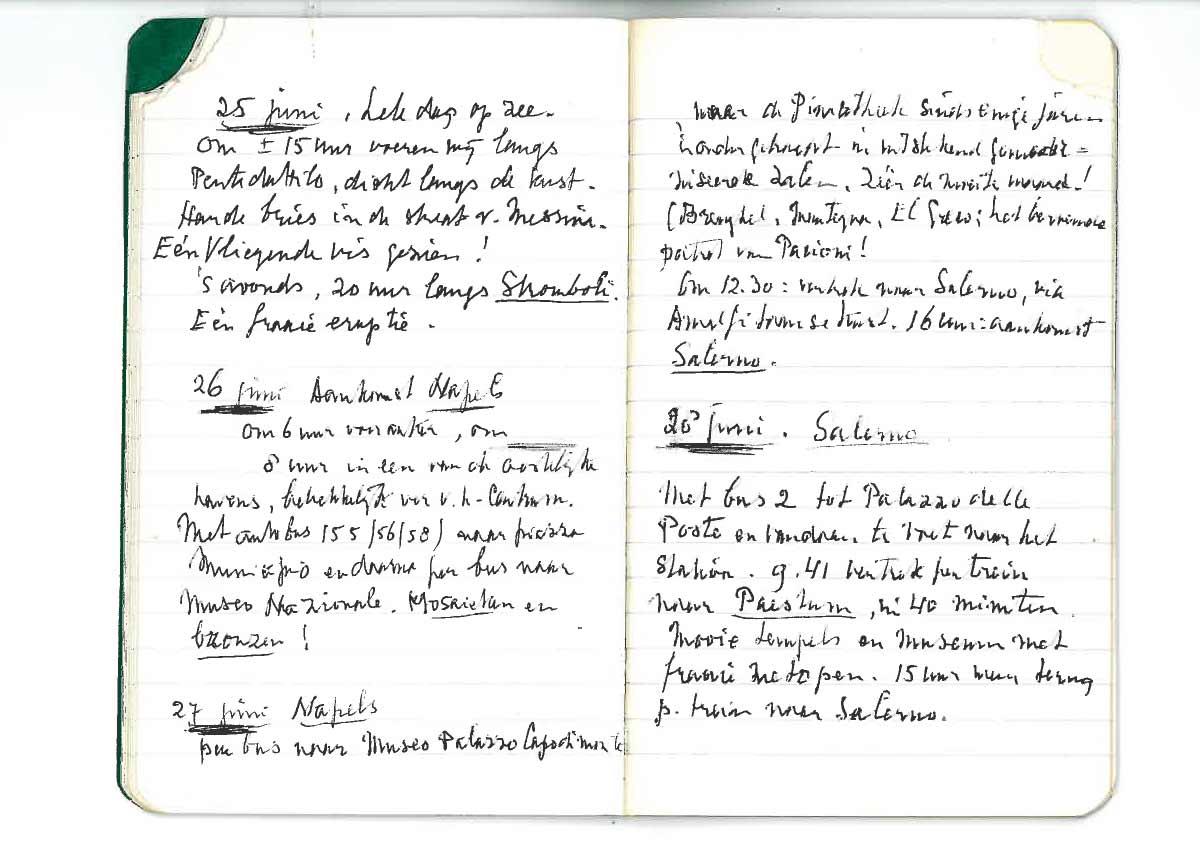 25 juni, hele dag op zee.
om ± 15 uur voeren wij langs
Pentidattilo, dicht langs de kust.
Harde bries in de straat v. Messina.
Eén vliegende vis gezien!
's avonds, 20 uur langs Stromboli.
Eén fraaie eruptie.
26 juni Aankomst Napels
om 6 uur voor anker, om
8 uur in een van de
havens, betrekkelijk ver v. h. Centrum.
Met autobus 155/56/58) naar piazza
Municipio en daarna per bus naar
Museo Nazionale. Mozaieken en
bronzen!
27 juni Napels
per bus naar Museo Palazzo Capodimonte
waar de Pinacotheek sinds enige jaren
is ondergebracht in uitstekend
zalen. Zéér de moeite waard!
(Breughel, Mantegna, El Greco; het beroemde
portret van Pacioni!
Om 12.30: vertrek naar Salerno, via
Amalfitaanse kust. 16 uur: aankomst
Salerno.
28 juni. Salerno
Met bus 2 tot Palazzo delle
Poste en vandaar te voet naar het
station. 9.41 vertrek per trein
naar Paestum, in 40 minuten.
Mooie tempels en museum met
fraaie metopen. 15 uur weer terug
p. trein naar Salerno.